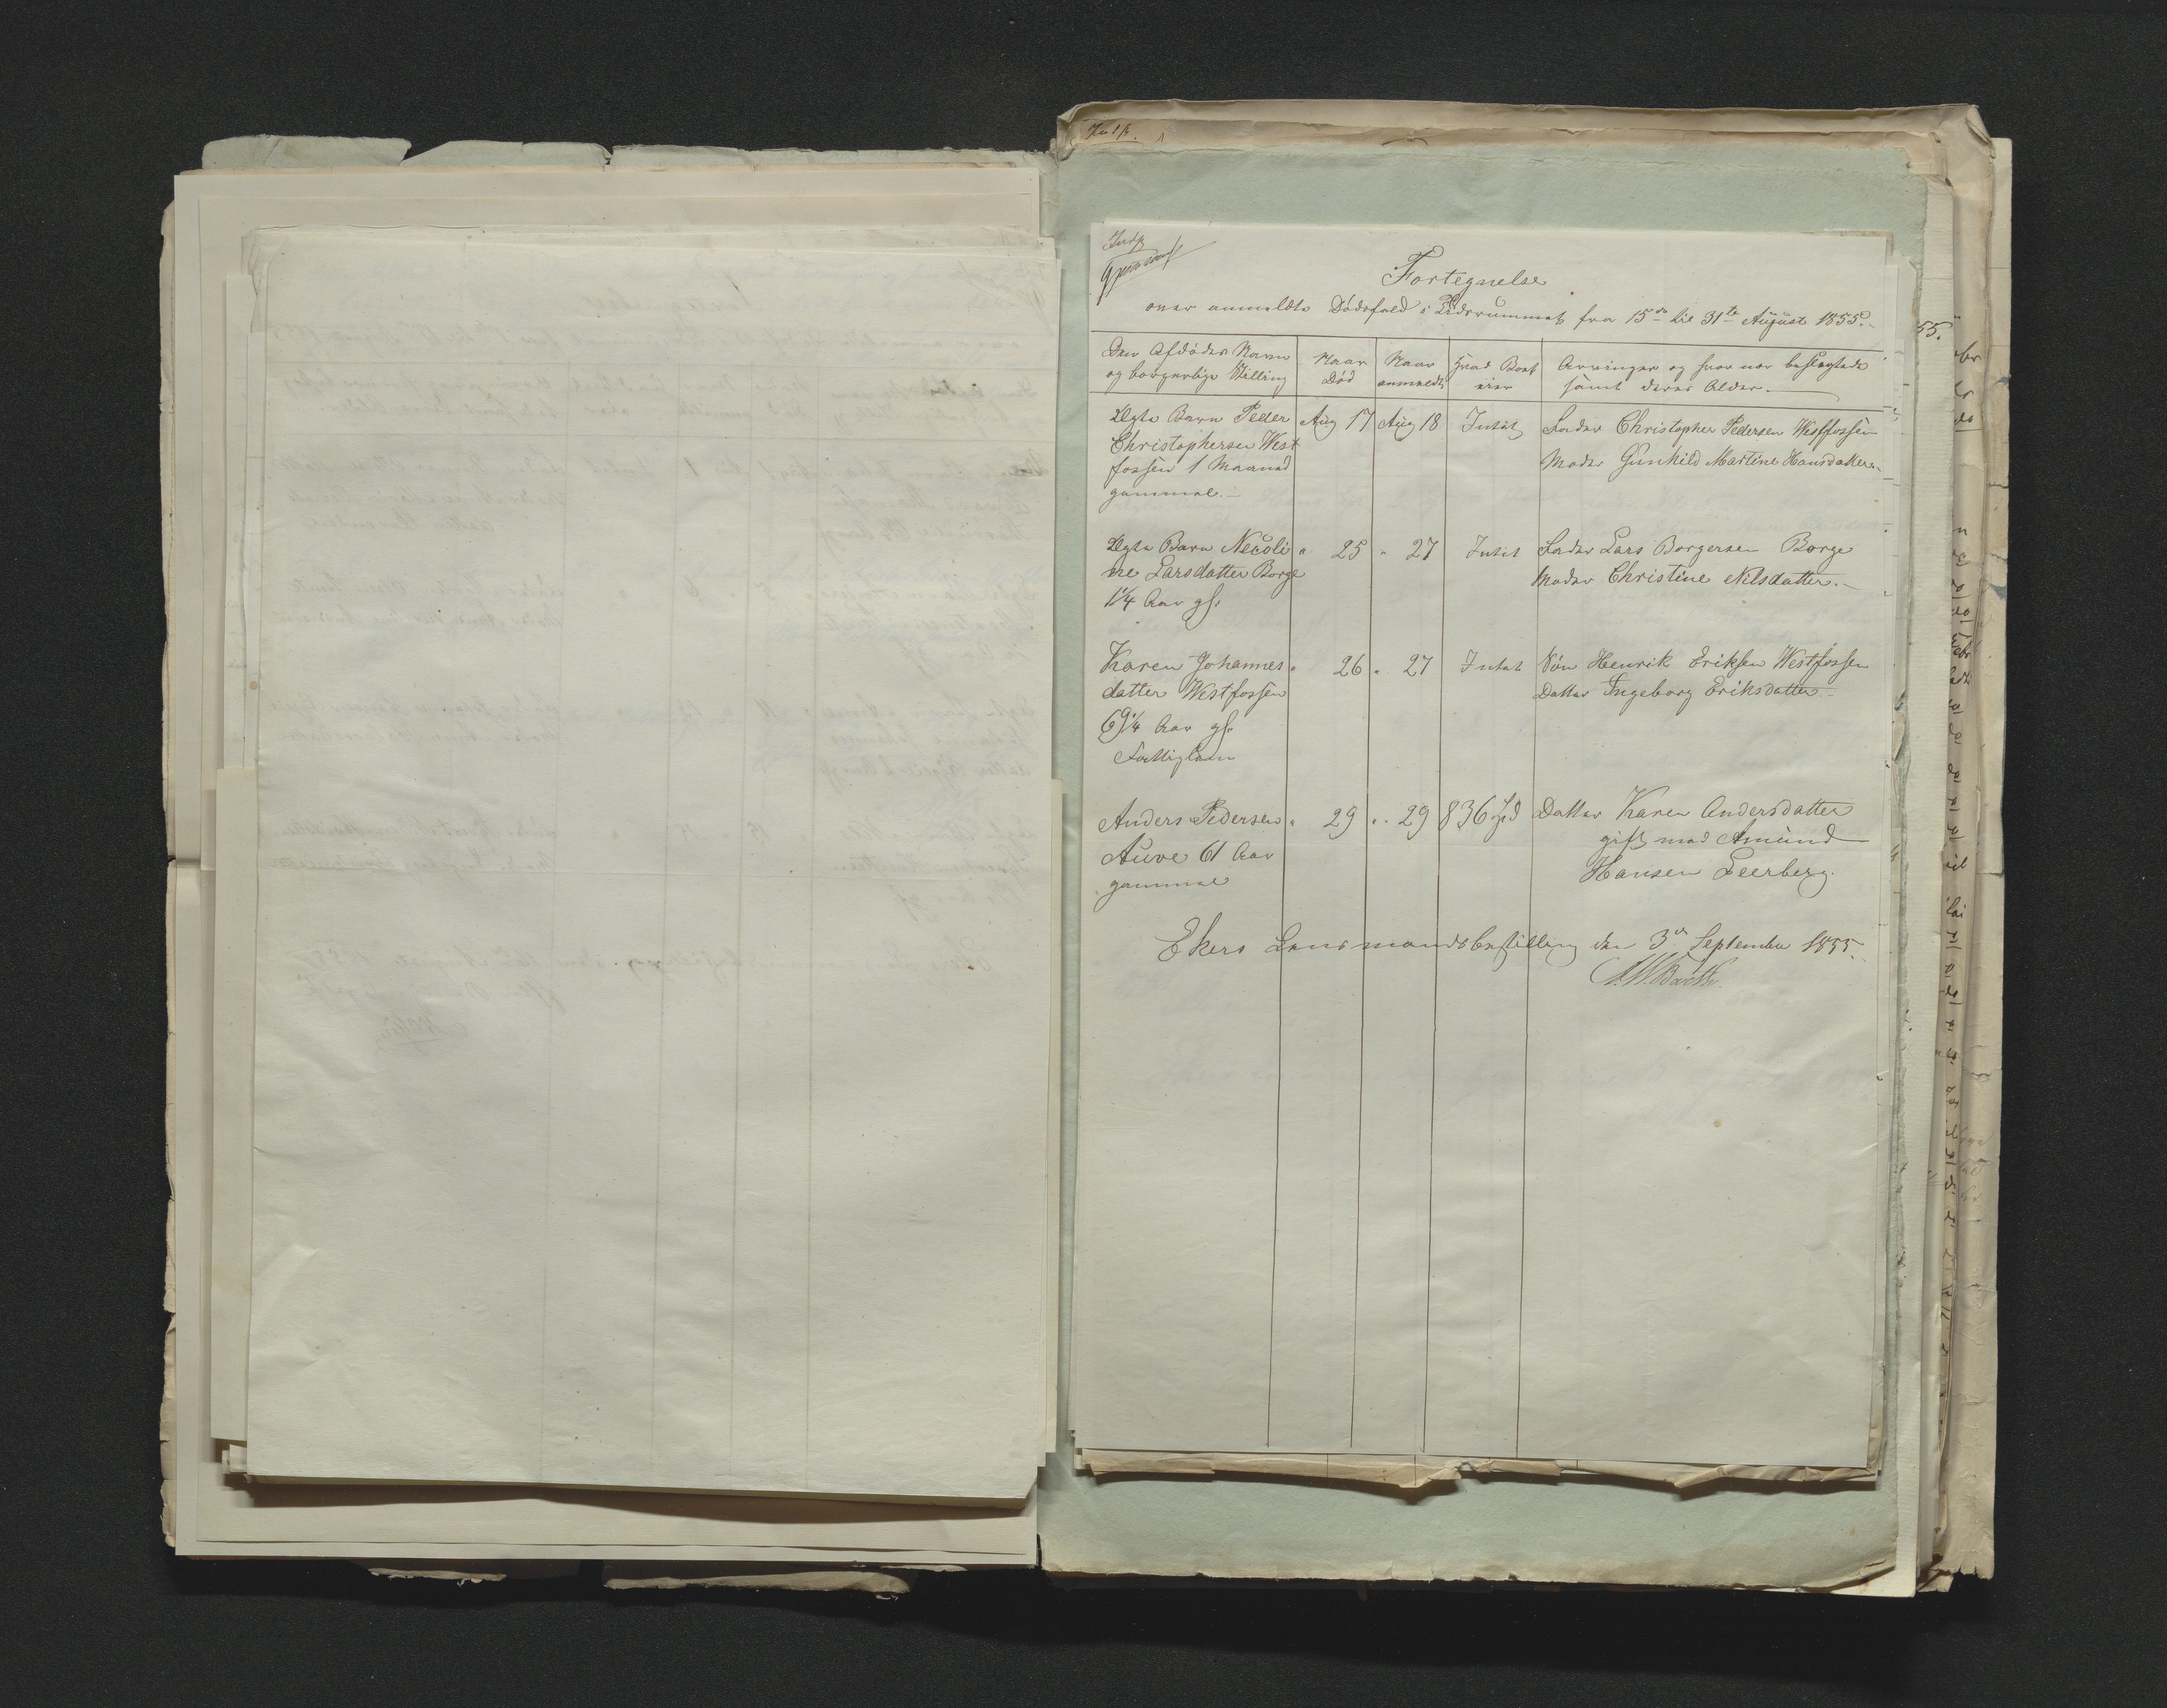 Fortegnelse
over anmeldte Dødsfald i Tidsrummet fra 15de til 31te August 1855.
Den Afdødes Navn og borgerlige Stilling
Naar Død
Naar anmeldt
Hvad Boet eier
Arvinger og hvor nær beslægtede samt deres Alder.
Ægte Barn Peder Aug 17 Aug 18 Intet Fader Christopher Pedersen Westfossen
Christophersen West Moder Gunhild Martine Hansdatter.
fossen 1 Maaned
gammel.
Ægte Barn Necoli " 25 " 27 Intet Fader Lars Borgersen Borge
ne Larsdatter Borge Moder Christine Nilsdatter.
1 1/4 Aar gl.
Karen Johannes " 26 " 27 Intet Søn Henrik Eriksen Westfossen
datter Westfossen Datter Ingeborg Eriksdatter
69 1/4 Aar gl.
Fattiglem
Anders Pedersen " 29 " 29 836 Datter Karen Andersdatter
Auve 61 Aar gift med Amund
gammel Hansen Leerberg.
Ekers Lensmandsbestilling den 3de September 1855.
Barth.
55.